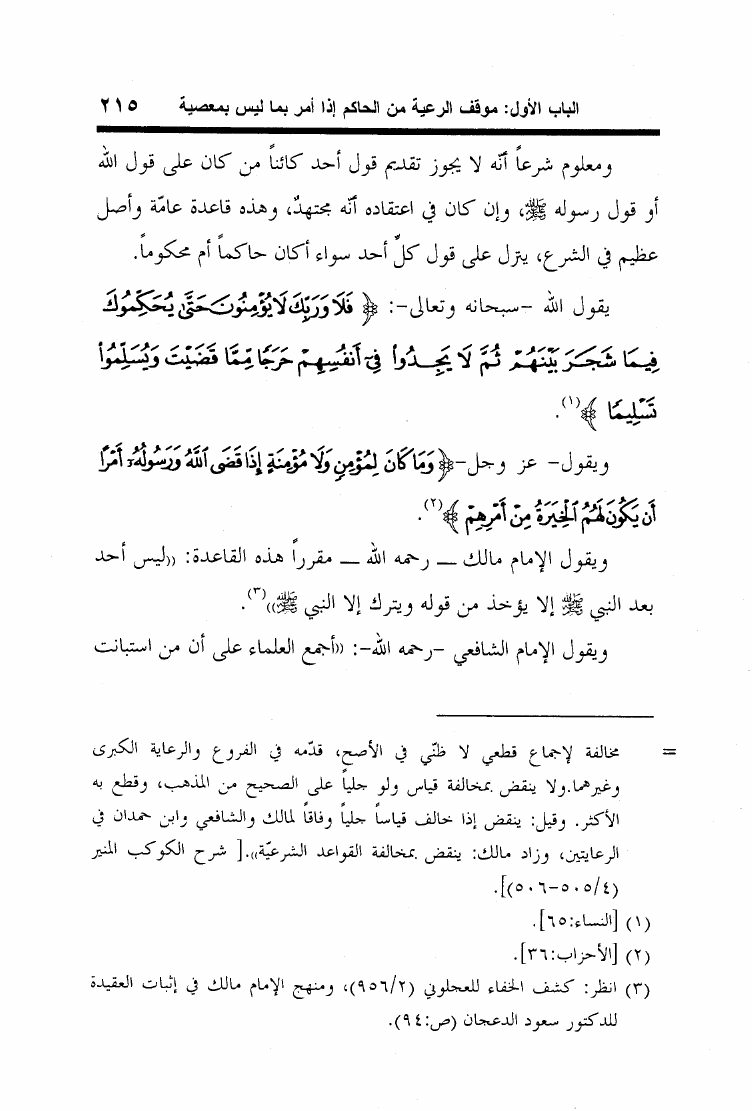 الباب الأول: موقف الرعية من الحاكم إذا أمر بما ليس بمعصية ٢١٥
ومعلوم شرعاً أنّه لا يجوز تقديم قول أحد كائناً من كان على قول الله
أو قول رسوله ﷺ، وإن كان في اعتقاده أنّه مجتهدٌ، وهذه قاعدة عامّة وأصل
عظيم في الشرع، يتزل على قول كلِّ أحد سواء أكان حاكماً أم محكوماً.
يقول الله -سبحانه وتعالى-: ﴿ فَلَا وَرَبِّكَ لَا يُؤْمِنُونَ حَتَّىٰ يُحَكِّمُوكَ
فِيمَا شَجَرَ بَيْنَهُمْ ثُمَّ لَا يَجِدُوا۟ فِىٓ أَنفُسِهِمْ حَرَجًا مِّمَّا قَضَيْتَ وَيُسَلِّمُوا۟
تَسْلِيمًا ﴾(١).
ويقول- عز وجل-﴿ وَمَا كَانَ لِمُؤْمِنٍ وَلَا مُؤْمِنَةٍ إِذَا قَضَى ٱللَّهُ وَرَسُولُهُۥٓ أَمْرًا
أَن يَكُونَ لَهُمُ ٱلْخِيَرَةُ مِنْ أَمْرِهِمْ ﴾(٢).
ويقول الإمام مالك ــ رحمه الله ــ مقرراً هذه القاعدة: ((ليس أحد
بعد النبي ﷺ إلا يؤخذ من قوله ويترك إلا النبي ﷺ))(٣).
ويقول الإمام الشافعي -رحمه الله-: ((أجمع العلماء على أن من استبانت
= مخالفة لإجماع قطعي لا ظنّي في الأصح، قدّمه في الفروع والرعاية الكبرى
وغيرهما.ولا ينقض بمخالفة قياس ولو جلياً على الصحيح من المذهب، وقطع به
الأكثر. وقيل: ينقض إذا خالف قياساً جلياً وفاقاً لمالك والشافعي وابن حمدان في
الرعايتين، وزاد مالك: ينقض بمخالفة القواعد الشرعيّة)).[ شرح الكوكب المنير
(٤/٥٠٥-٥٠٦)].
(١) [النساء:٦٥].
(٢) [الأحزاب:٣٦].
(٣) انظر: كشف الخفاء للعجلوني (٩٥٦/٢)، ومنهج الإمام مالك في إثبات العقيدة
للدكتور سعود الدعجان (ص:٩٤).